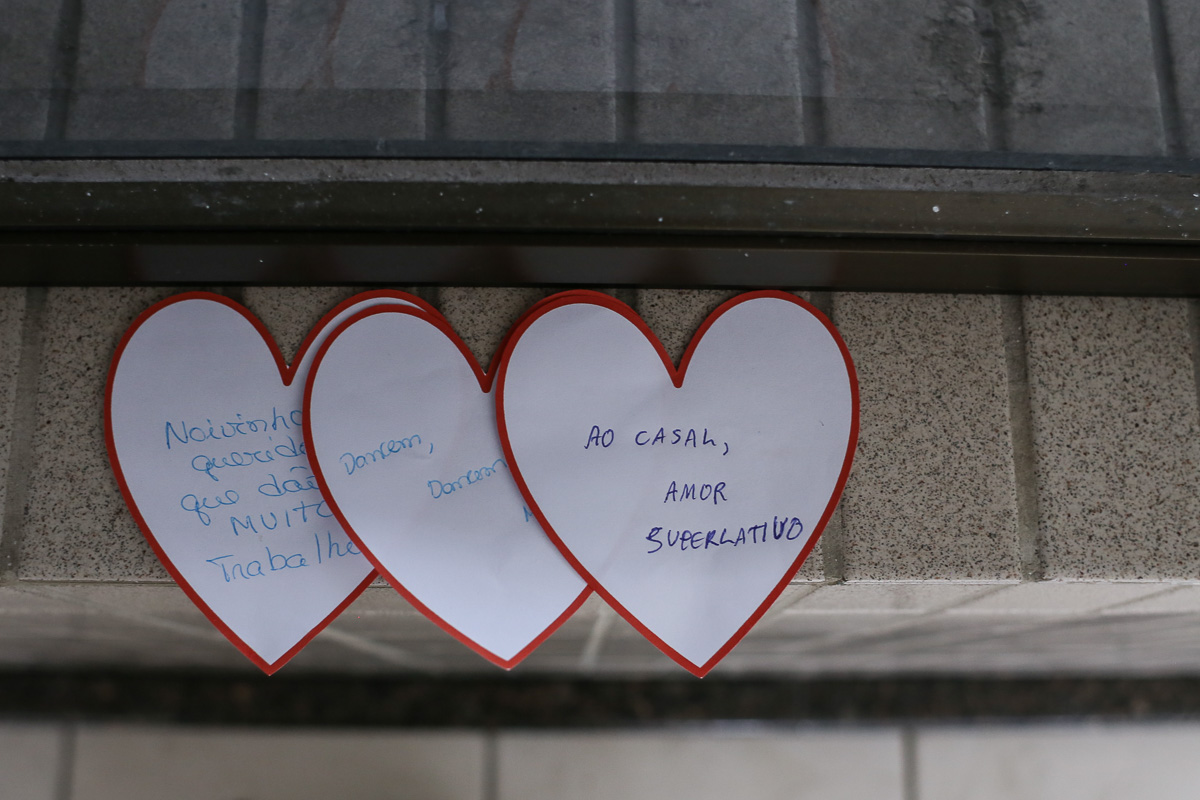 Noivinho
querido
que dão
MUITO
Trabalho
Dancem,
Dancem
AO CASAL,
AMOR
SUPERLATIVO